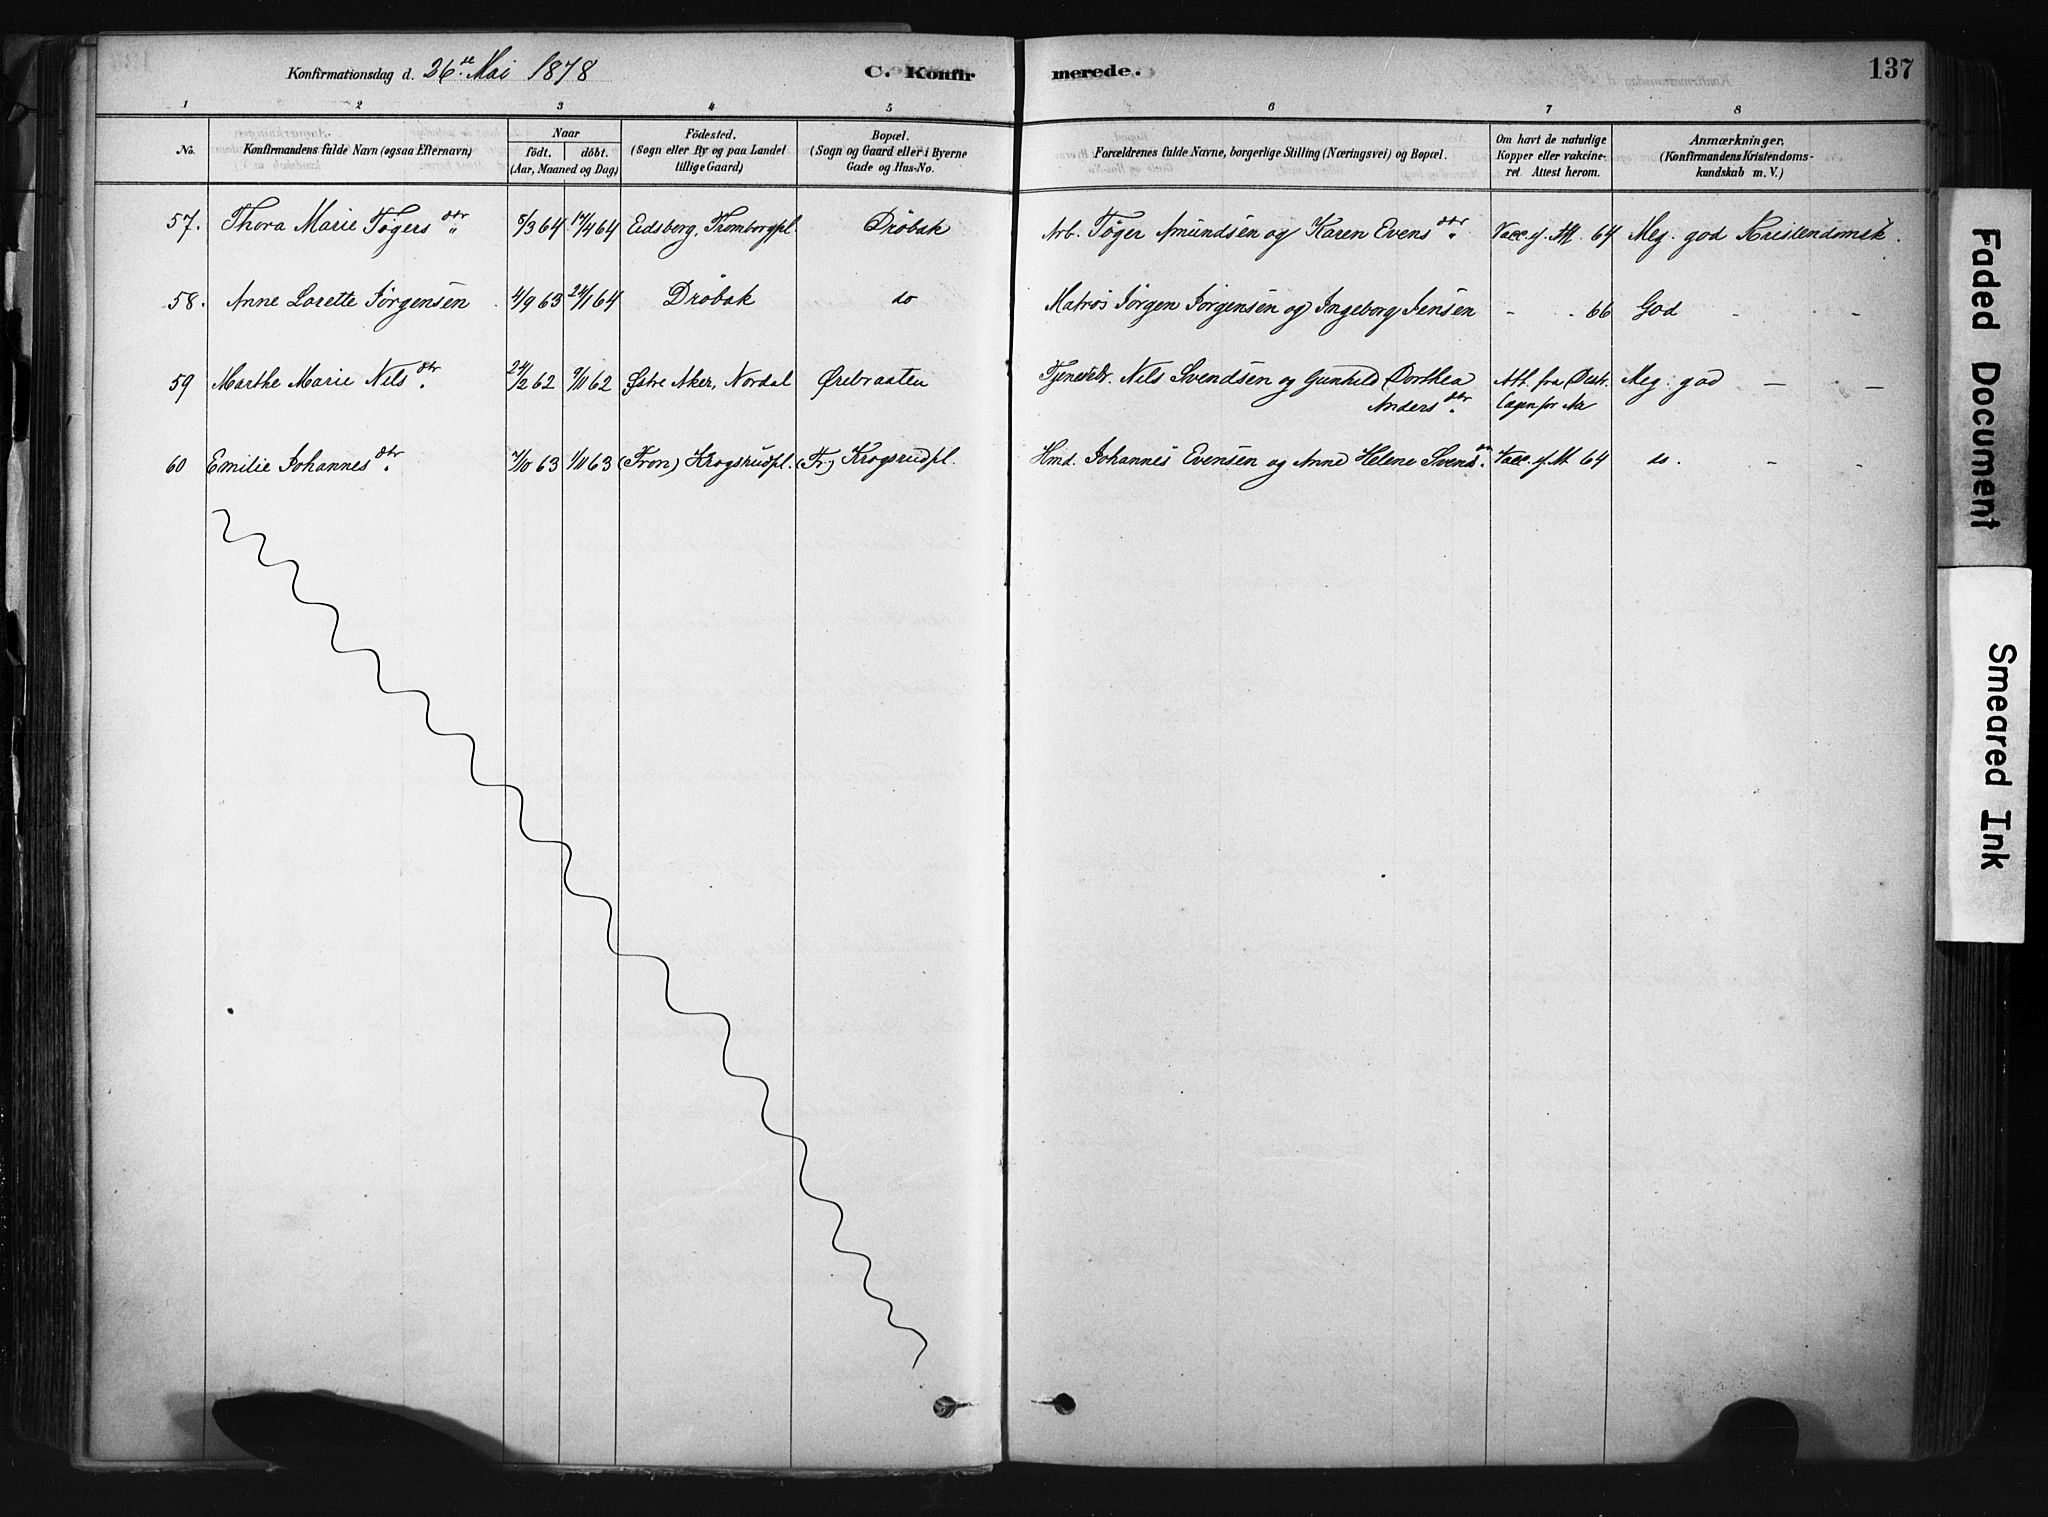 Konfirmationsdag d. 26de Mai 1878 C. Konfirmerede. 137
1 2 3 4 5 6 7 8
No. Konfirmandens fulde Navn (ogsaa Efternavn) Naar födt. döbt. (Aar, Maaned og Dag) Födested. (Sogn eller By og paa Landet tillige Gaard) Bopæl. (Sogn og Gaard eller i Byerne Gade og Hus-No. Forældrenes fulde Navne, borgerlige Stilling (Næringsvei) og Bopæl. Om havt de naturlige Kopper eller vakcineret. Attest herom. Anmærkninger, (Konfirmandens Kristendomskundskab m. V.)
57. Thora Marie Tøgers dtr 5/3 64 17/4 64 Eidsberg, Tromborgpl Drøbak Arb. Tøger Amundsen og Karen Evens dtr. Vacc. f. M. 64 Meg. god Kristendomsk.
58. Anne Lorette Jørgensen 4/9 63 24/1 64 Drøbak do Matros Jørgen Jørgensen og Ingeborg Jensen - - 66 God - -
59 Marthe Marie Nils dtr. 24/2 62 9/11 62 Østre Aker, Nordal Ørebraaten Nils Svendsen og Gunhild Dorthea Anders dtr. Att. fra Distr. Lægen for Meg. god - -
60 Emilie Johannes dtr. 7/10 63 1/11 63 (Fron) Krogsrudpl. (Fr.) Krogsrudpl. Hmd. Johannes Evensen og Anne Helene Svends dtr. Vacc. f. M. 64 do. - -
Faded Document
Smeared Ink